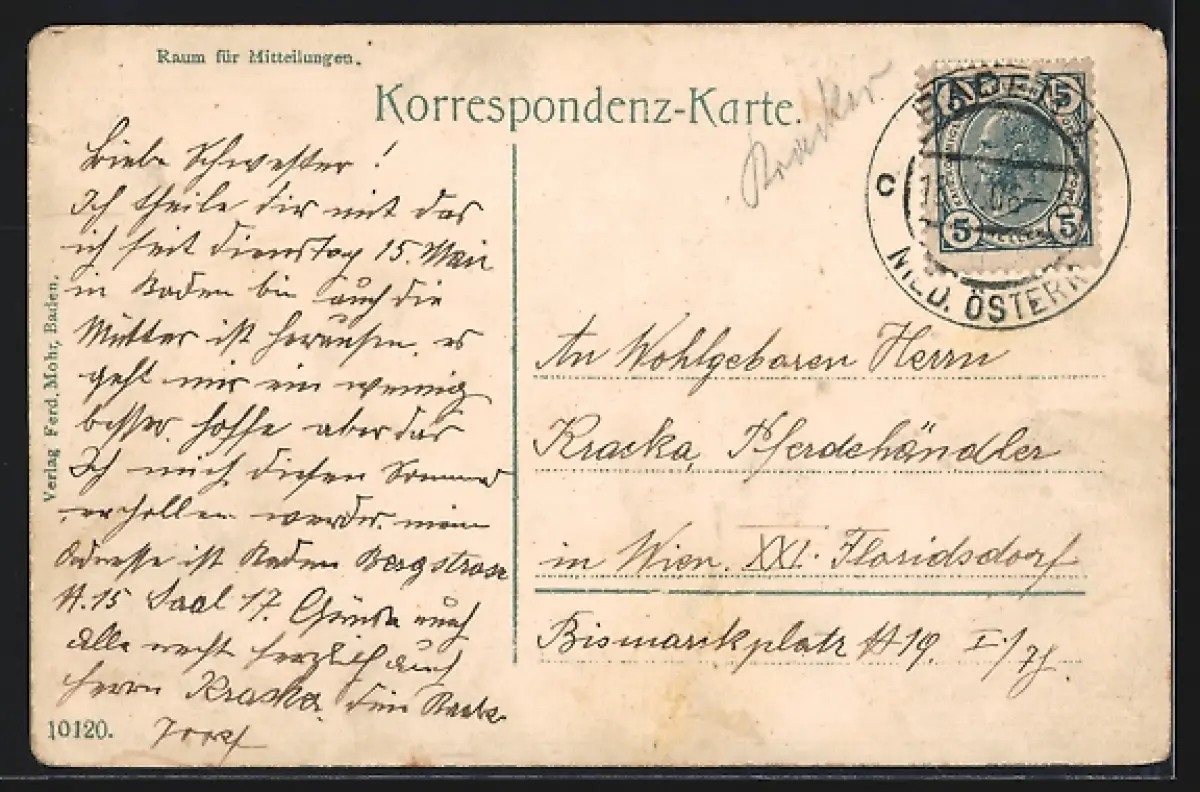 Raum für Mitteilungen.
Korrespondenz-Karte.
Liebe Schwester!
Ich theile dir mit das
ich seit Dienstag 15. Mai
in Baden bin auch die
Mutter ist heraußen. es
geht mir ein wennig
besser, hoffe aber das
Ich mich diesen Sommer
erhollen werde. meine
Adresse ist Baden Bergstrase
N. 15 Saal 17. Grüße euch
Alle recht herzlich auch
Herrn Kracka. dein
Josef
10120.
Verlag Ferd. Mohr, Baden.
BADEN
C
NIED. ÖSTERR
5 5
5 5
An Wohlgeboren Herrn
Kracka, Pferdehändler
in Wien. XXI. Floridsdorf
Bismarckplatz N 19. I./7